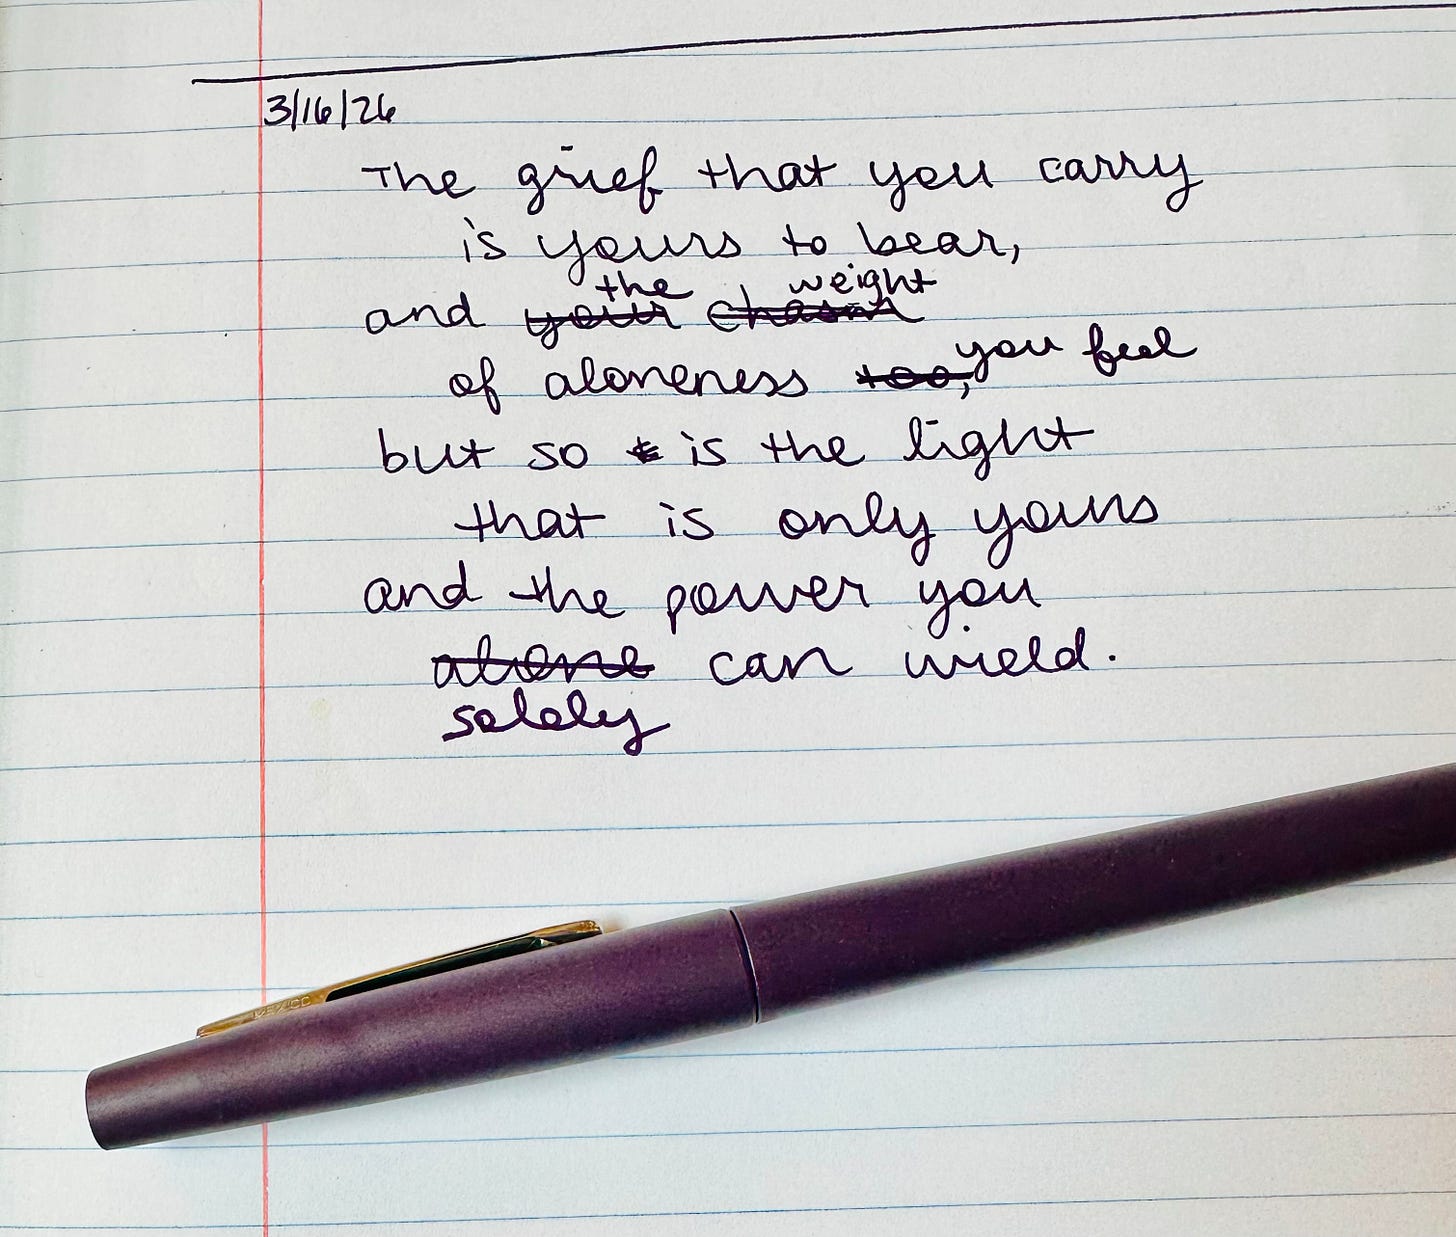 3/16/26
The grief that you carry
is yours to bear,
the weight
and your chasm
you feel
of aloneness too,
but so t is the light
that is only yours
and the power you
alone can wield.
solely
MEXICO